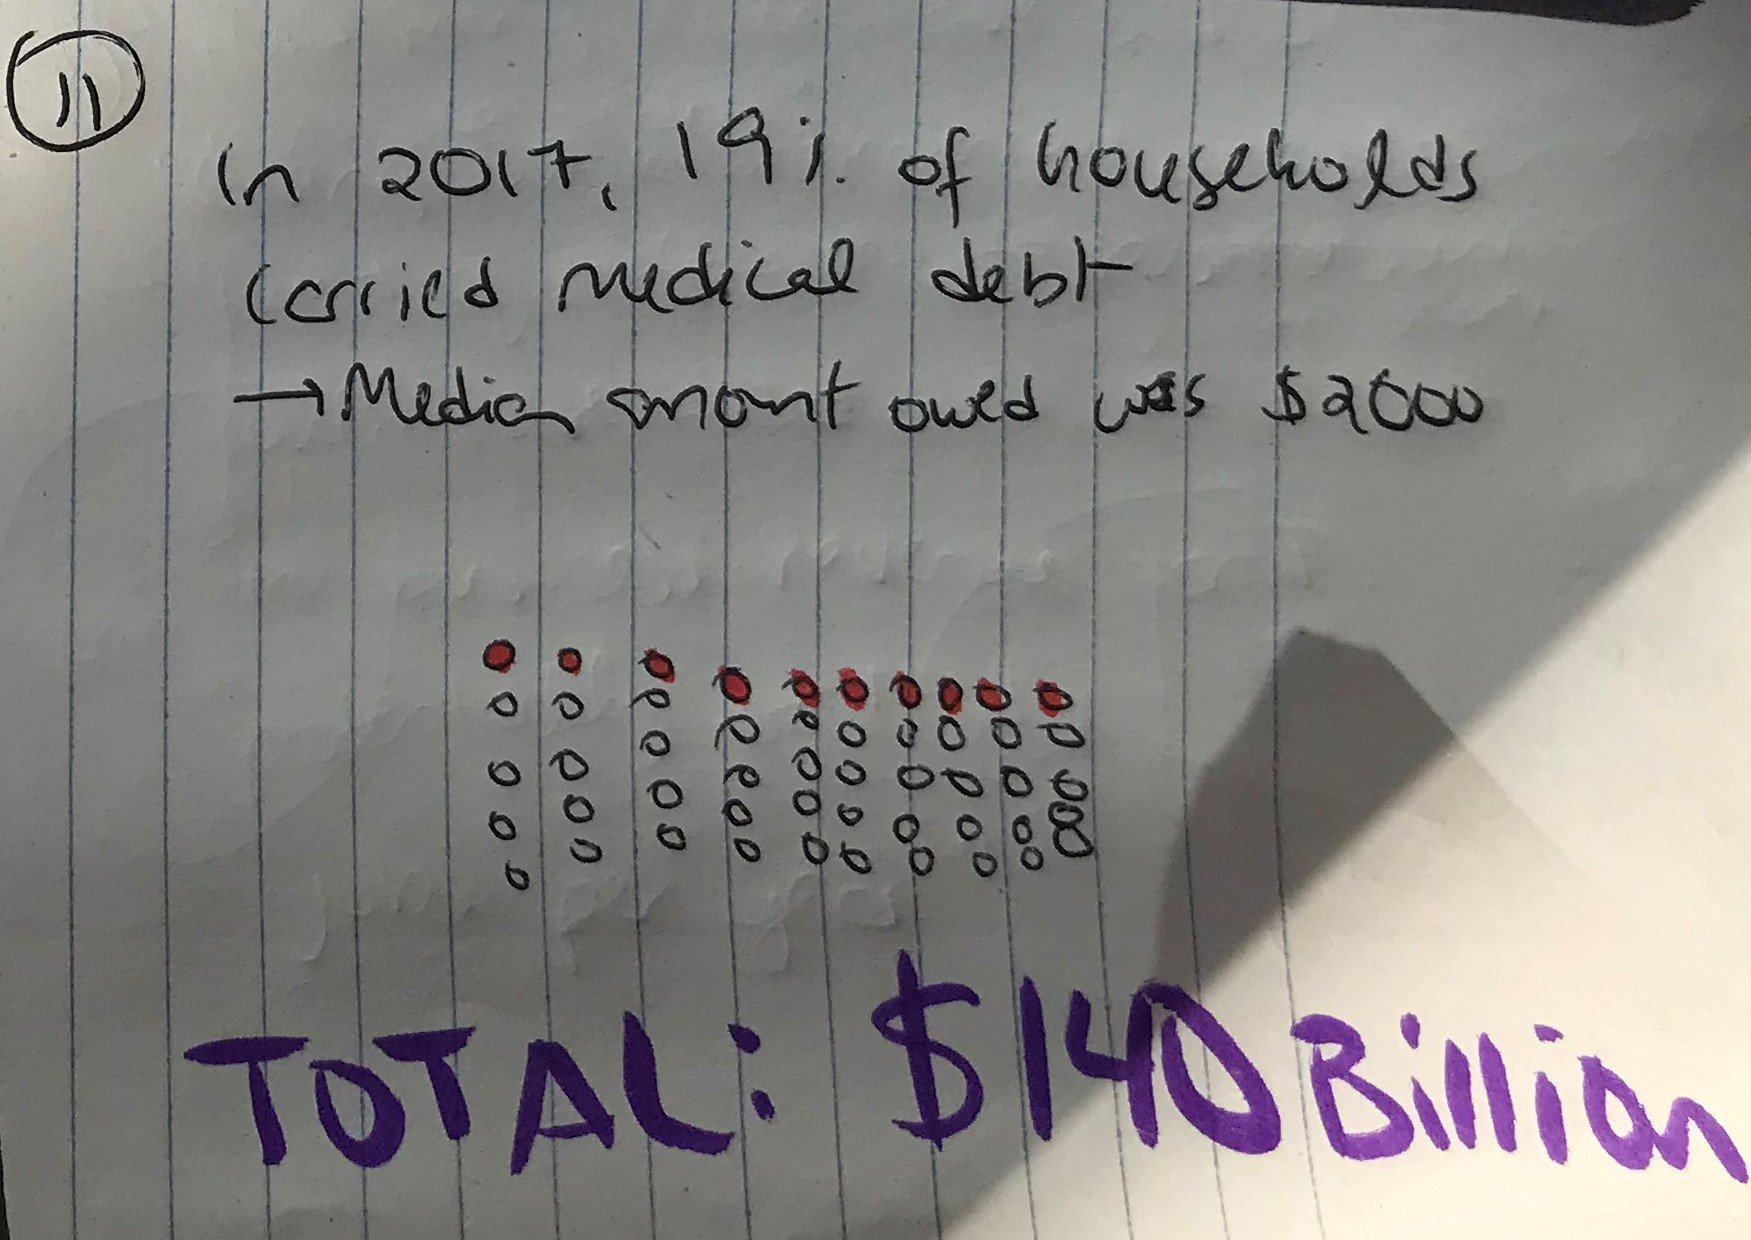 11
In 2017, 19% of households
carried medical debt
→ Median amount owed was $2000
TOTAL: $140 Billion